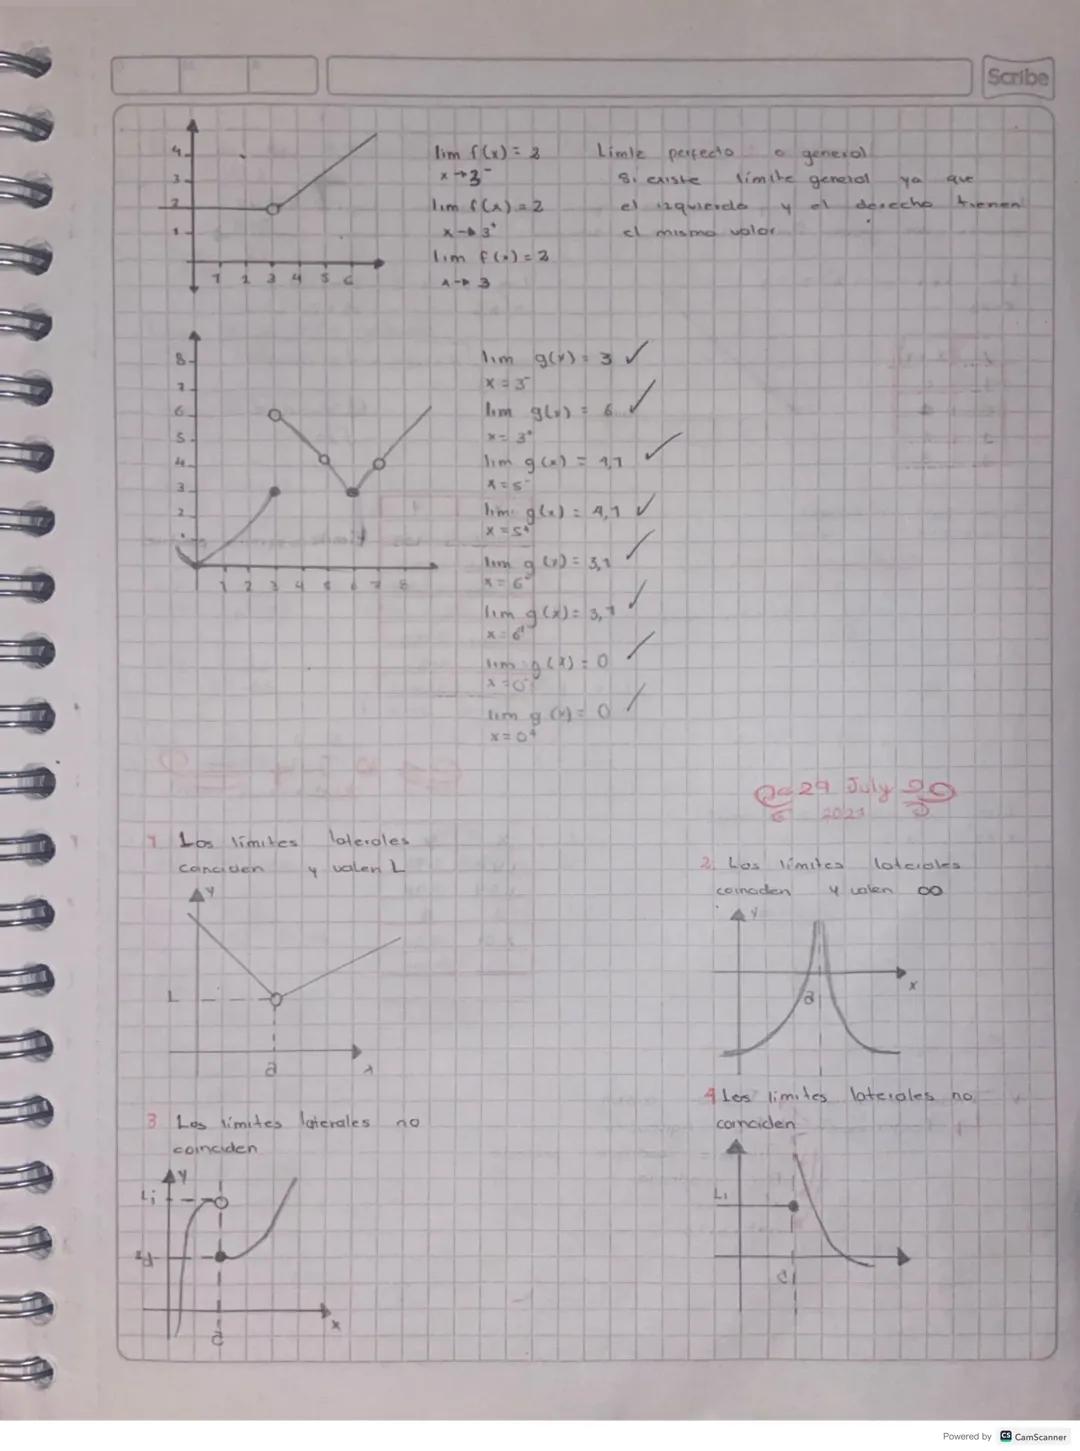 Scribe
4
3
2
1
1 2 3 4 5 6
lim f(x) = 2
x→3⁻
lim f(x) = 2
x→3⁺
lim f(x) = 2
x→3
Limte perfecto o general
Si existe límite general ya que
el izquierdo y el derecho tienen
el mismo valor
8
7
6
5
4
3
2
1 2 3 4 5 6 7 8
lim g(x) = 3 ✓
x = 3⁻
lim g(x) = 6 ✓
x = 3⁺
lim g(x) = 4,1 ✓
x = 5⁻
lim g(x) = 4,1 ✓
x = 5⁺
lim g(x) = 3,1 ✓
x = 6⁻
lim g(x) = 3,1 ✓
x = 6⁺
lim g(x) = 0 ✓
x = 0⁻
lim g(x) = 0 ✓
x = 0⁺
29 July
2021
1 Los límites laterales
coinciden y valen L
y
L
a
x
2. Los límites laterales
coinciden y valen ∞
y
a
x
3 Los límites laterales no
coinciden
y
Li
Ld
a
x
4 Los límites laterales no
coinciden
Li
a
Powered by CS CamScanner